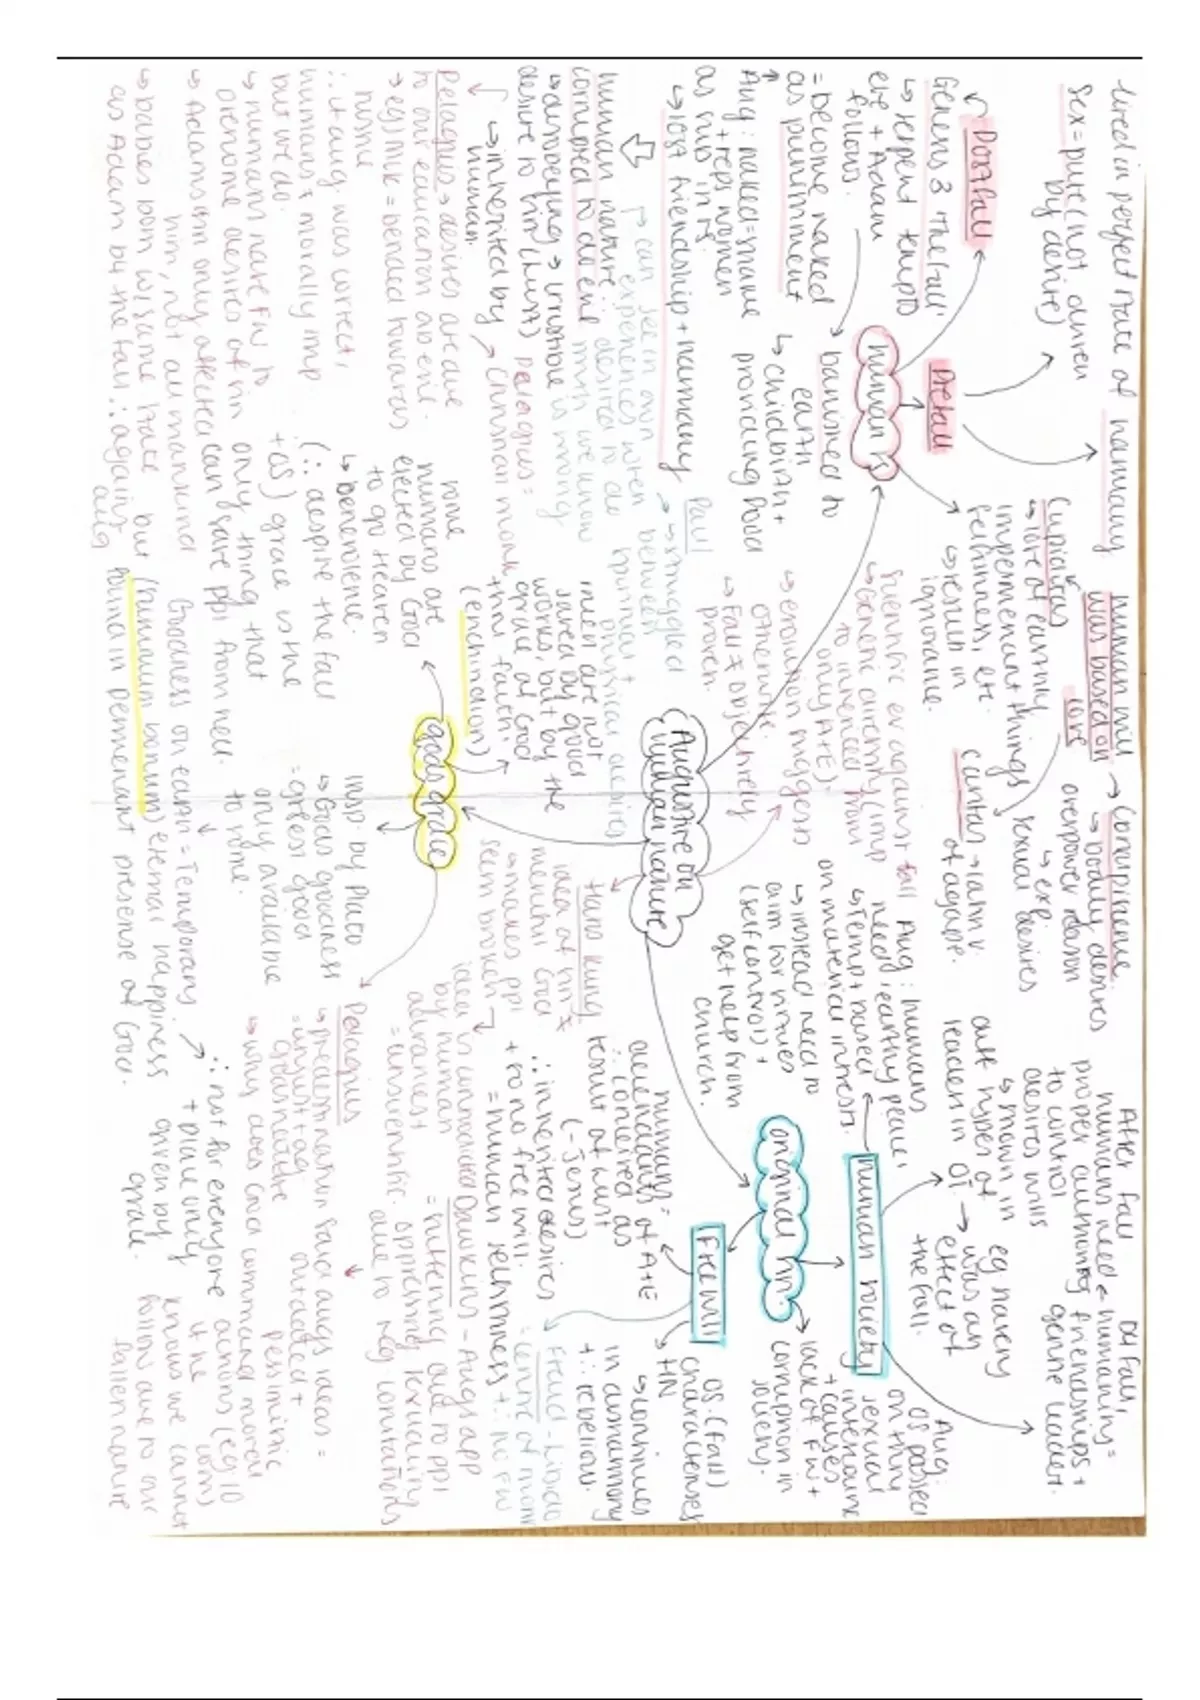 lived in perfect state of harmony
sex = pure (not driven
by desire)
Postfall
Genesis 3 'the fall'
↳ serpent tempts
eve + Adam
follows.
= become naked
as punishment
Aug: naked = shame
+ reps women
as sub in r/s.
↳ lost friendship + harmony
Prefall
human r/s
→ banished to
earth
↳ childbirth +
providing food
human rel/s
was based on
love
Cupiditas
↳ love of earthly
impermenent things
selfishness, etc.
↳ results in
ignorance.
caritas → latin v.
of agape.
→ Concupiscence
↳ bodily desires
overpower reason
↳ exp.
sexual desires
After fall
humans need
proper authority
to control
desires wills
↳ shown in
diff types of
leaders in OT
e.g. slavery
→ was an
effect of
the fall.
B4 fall,
humanity =
friendships +
gentle leader.
Augustine on
human nature
scientific ev against fall
↳ genetic diversity (imp
to inherited from
only A+E)
↳ evolution suggests
otherwise.
→ Fall ≠ objectively
proven.
Paul
→ struggled
between
spiritual +
physical desires
→ can see in own
experiences when
human nature: desires to do
corrupted to do evil
↳ disobeying → irresistible
desire to sin (lust)
↳ inherited by
human.
Pelagius =
christian monk
Pelagius → desires are due
to our education ab evil.
→ eg) mlk = bended towards
justice
∴ it aug. was correct,
humans ≠ morally imp
but we do.
↳ humans have FW to
overcome desires of sin
↳ Adams sin only affected
him, not all mankind
↳ babies born w/ same state
as Adam b4 the fall ∴ against
aug
gods grace
men are not
saved by good
works, but by the
grace of God
thru faith.
(enchiridion)
some
humans are
elected by God
to go heaven
↳ benevolence.
(∴ despite the fall
+ OS) grace is the
only thing that
can save ppl from hell.
insp. by Plato
↳ Gods goodness
= greatest good
only available
to some.
Goodness on earth = Temporary
but (summum bonum) eternal happiness
found in permenant presense of God.
∴ not for everyone
+ place only
given by
grace.
Pelagius
↳ predestination
= unjust + ag.
gods nature
↳ why does God command moral
actions (eg. 10
coms)
if he
knows we cannot
follow due to our
fallen nature
Said augs ideas =
outdated +
pessimistic
Hans Kung
idea of sin ≠
merciful God
↳ makes ppl
seem broken
Dawkins - Augs app
= inferring due to ppl
oppressing sexuality
due to neg connotations
original sin.
human society
Aug: humans
need 'earthly peace'
↳ temp + based
on material interests.
↳ instead need to
aim for virtues
(self control) +
get help from
church.
Aug:
OS passed
on thru
sexual
intercourse
+ causes
lack of FW +
corruption in
society.
Free will
humans =
decendants of A+E
∴ conceived as
result of lust
(- Jesus)
∴ inherited desires
+ so no free will.
= human selfishness + ∴ no FW
OS. (fall)
characterises
HN
↳ continues
in disharmony
+ ∴ rebellion.
Freud - Libido